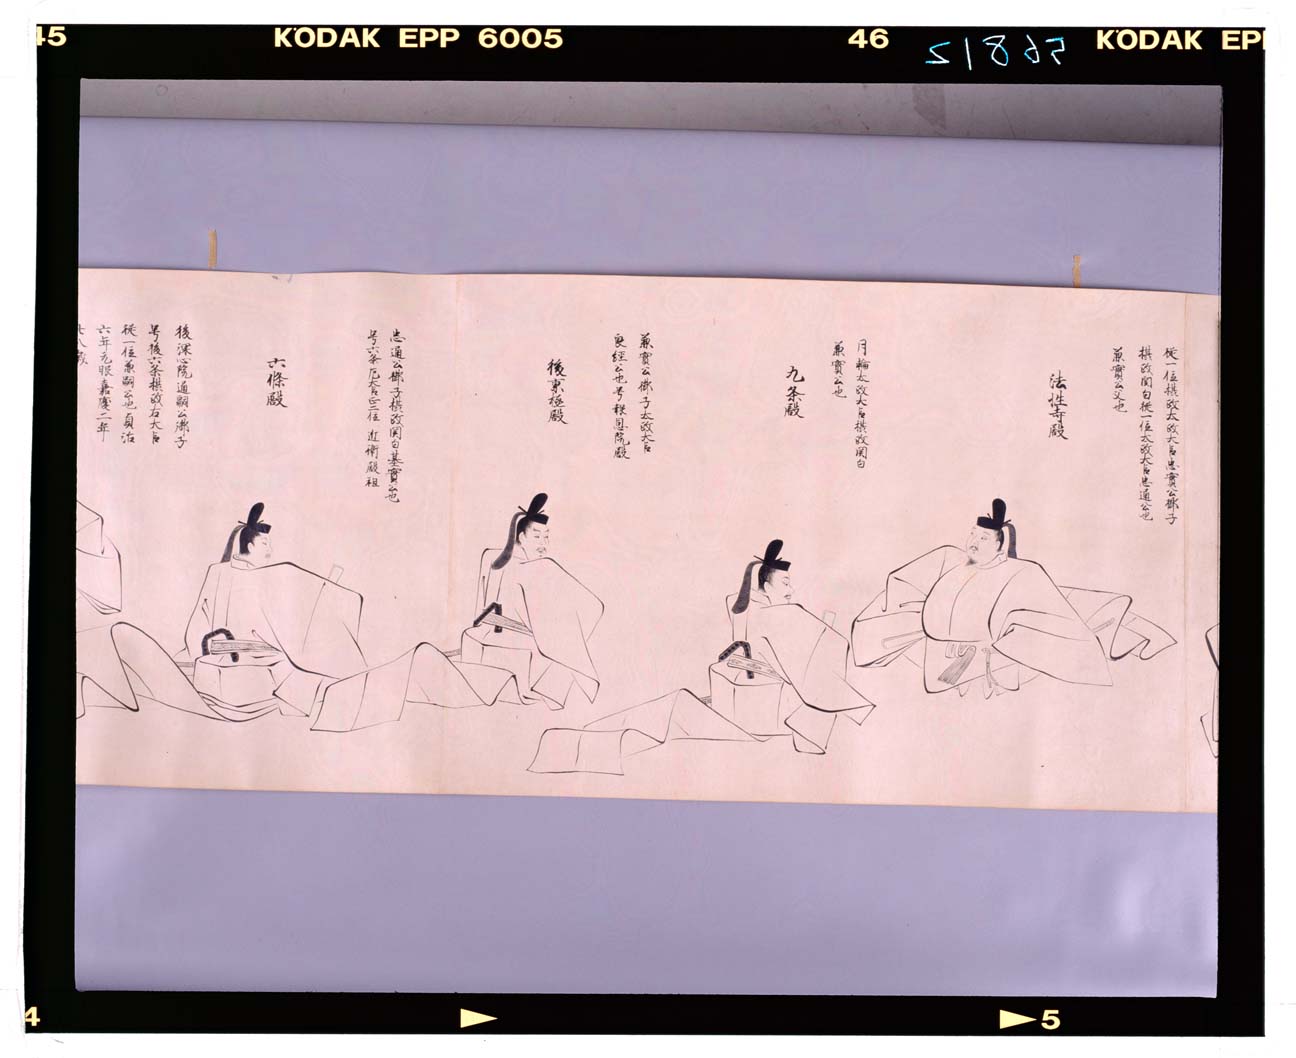 45
KODAK EPP 6005
46
KODAK EP
從一位摂政太政大臣忠實公御子
摂政関白從一位太政大臣忠通公也
兼實公父也
法性寺殿
月輪太政大臣摂政関白
兼實公也
九条殿
兼實公御子太政大臣
良經公也号報恩院殿
後京極殿
忠通公御子摂政関白基實公也
号六条
大臣正二位
近衛殿祖
六條殿
後深心院道嗣公御子
号後六条摂政右大臣
從一位兼嗣公也貞治
六年元服嘉慶二年
4
5